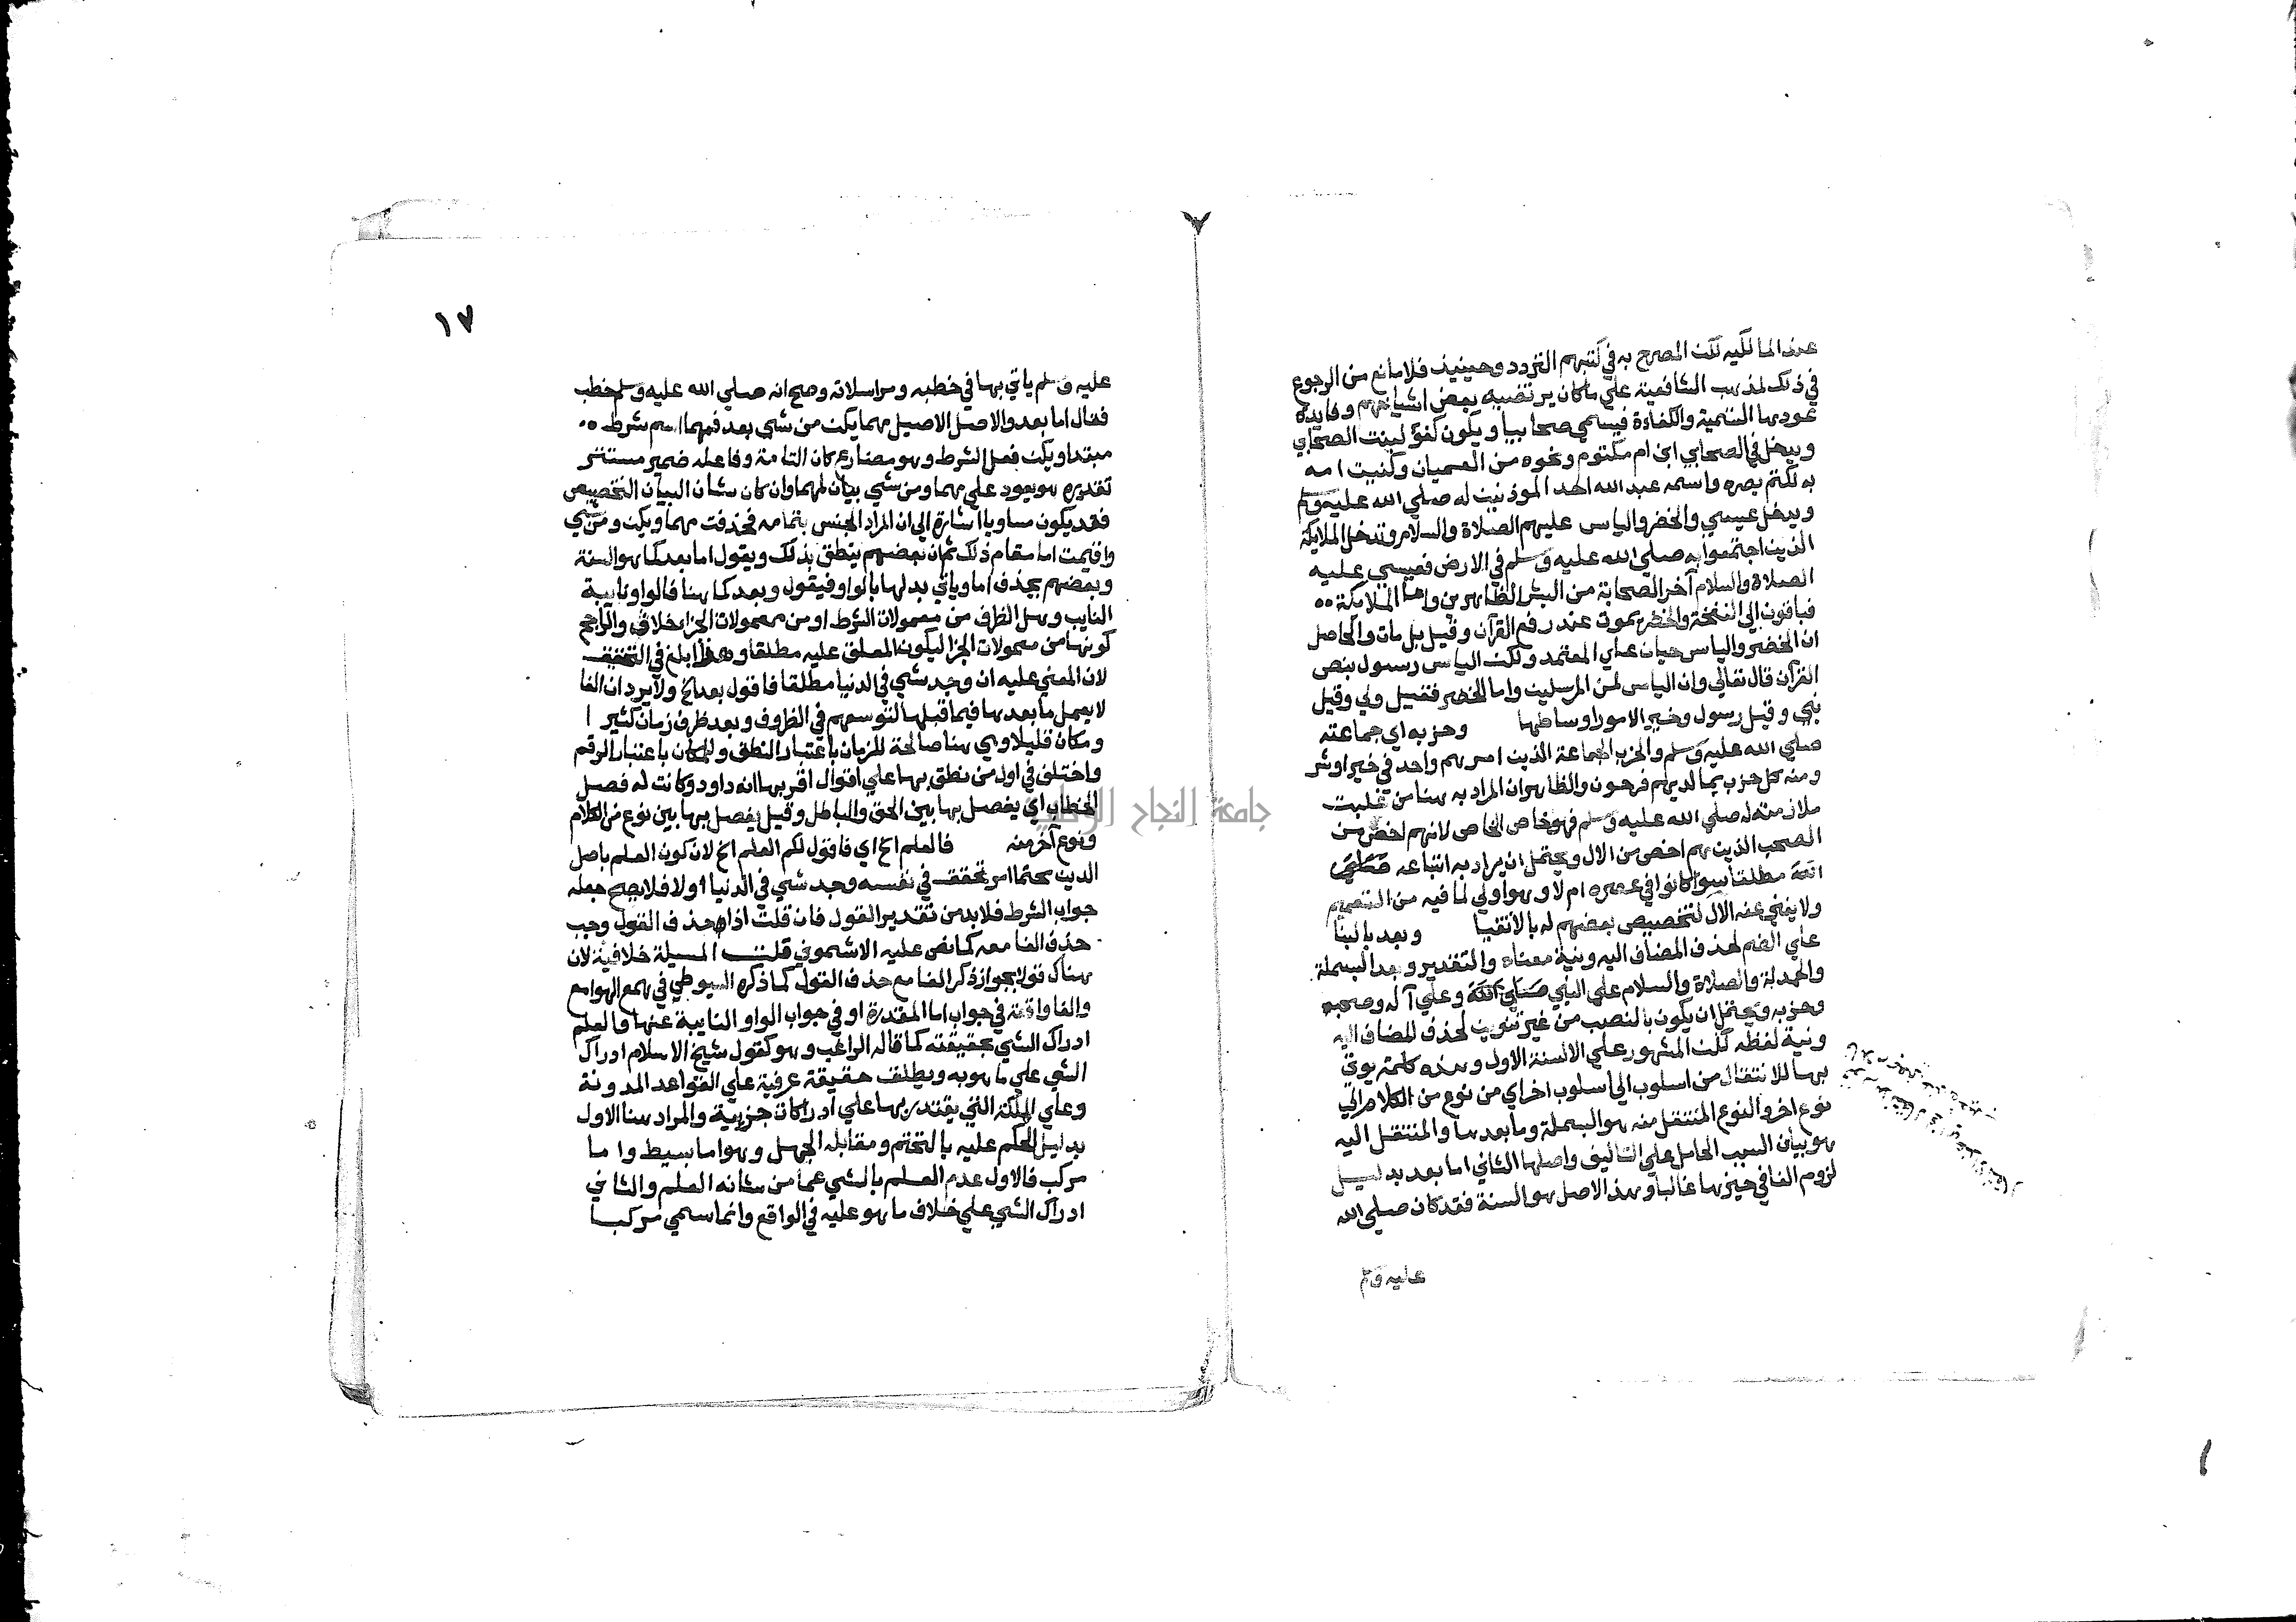 عند المالكيه لكن المصرح به في كتبهم التردد وحينيذ فلا مانع من الرجوع
في ذلك لمذهب الشافعية علي ما كان يرتضيه بعض اشياخهم وفايدة
عودها التسمية والكفاءة فيسمي صحابيا ويكون كفؤ لبنت الصحابي
ويدخل في الصحابي ابن ام مكتوم ونحوه من العميان وكنيت امه
به لكتم بصره واسمه عبد الله احد الموذنين له صلي الله عليه وسلم
ويدخل عيسي والخضر والياس عليهم الصلاة والسلام وتدخل الملايكة
الذين اجتمعوا به صلي الله عليه وسلم في الارض فعيسي عليه
الصلاة والسلام آخر الصحابة من البشر الظاهرين واما الملايكة
فباقون الي النفخة والخضر يموت عند رفع القرآن وقيل بل مات والحاصل
ان الخضر والياس حيان علي المعتمد ولكن الياس رسول بنص
القرآن قال تعالي وان الياس لمن المرسلين واما الخضر فقيل ولي وقيل
نبي وقيل رسول وخير الامور اوساطها وحزبه اي جماعته
صلي الله عليه وسلم والحزب الجماعة الذين امرهم واحد في خير او شر
ومنه كل حزب بما لديهم فرحون والظاهر ان المراد به هنا من غلبت
ملازمته له صلي الله عليه وسلم فهو خاص الخاص لانهم اخص من
الصحب الذين هم اخص من الال ويحتمل ان يراد به اتباعه صلي
الله مطلقا سوا كانوا في عصره ام لا وهو اولي لما فيه من التعميم
ولا يغني عنه الال لتخصيص بعضهم له بالاتقيا وبعد بالبنا
علي الضم لحذف المضاف اليه ونية معناه والتقدير وبعد البسملة
والحمدلة والصلاة والسلام علي النبي صلي الله وعلي آله وصحبه
وحزبه ويحتمل ان يكون بالنصب من غير تنوين لحذف المضاف اليه
ونية لفظه لكن المشهور علي الالسنة الاول وهذه كلمة يوتي
بها للانتقال من اسلوب الي اسلوب اخر اي من نوع من الكلام الي
نوع اخر والنوع المنتقل منه هو البسملة وما بعدها والمنتقل اليه
هو بيان السبب الحامل علي التاليف واصلها الثاني اما بعد بدليل
لزوم الفا في حيزها غالبا وهذا الاصل هو السنة فقد كان صلي الله
عليه وسلم
١٧
عليه وسلم ياتي بها في خطبه ومراسلاته وصح انه صلي الله عليه وسلم خطب
فقال اما بعد والاصل الاصيل مهما يكن من شي بعد فمهما اسم شرط
مبتدا ويكن فعل الشرط وهو مضارع كان التامة وفاعله ضمير مستتر
تقديره هو يعود علي مهما ومن شي بيان لمهما وان كان شان البيان التخصيص
فقد يكون مساويا اشارة الي ان المراد الجنس بتمامه فحذفت مهما ويكن ومن شي
واقيمت اما مقام ذلك ثم ان بعضهم ينطق بذلك ويقول اما بعد كما هو السنة
وبعضهم يحذف اما وياتي بدلها بالواو فيقول وبعد كما هنا فالواو نايبة
النايب وهل الظرف من معمولات الشرط او من معمولات الجزا خلاف والراجح
كونها من معمولات الجزا ليكون المعلق عليه مطلقا وهذا ابلغ في التحقق
لان المعني عليه ان وجد شي في الدنيا مطلقا فاقول بعد الخ ولا يرد ان الفا
لا يعمل ما بعدها فيما قبلها لتوسعهم في الظروف وبعد ظرف زمان كثيرا
ومكان قليلا وهي هنا صالحة للزمان باعتبار النطق وللمكان باعتبار الرقم
واختلف في اول من نطق بها علي اقوال اقربها انه داود وكانت له فصل
الخطاب اي يفصل بها بين الحق والباطل وقيل يفصل بها بين نوع من الكلام
ونوع آخر منه فالعلم الخ اي فاقول لكم العلم الخ لان كون العلم باصل
الدين محتما امر تحقق في نفسه وجد شي في الدنيا اولا فلا يصح جعله
جواب الشرط فلا بد من تقدير القول فان قلت اذا حذف القول وجب
حذف الفا معه كما نص عليه الاشموني قلت المسيلة خلافية لان
هناك قولا بجواز ذكر الفا مع حذف القول كما ذكره السيوطي في همع الهوامع
والفا واقعة في جواب اما المقدرة او في جواب الواو النايبة عنها والعلم
ادراك الشي بحقيقته كما قاله الراغب وهو كقول شيخ الاسلام ادراك
الشي علي ما هو به ويطلق حقيقة عرفية علي القواعد المدونة
وعلي الملكة التي يقتدر بها علي ادراكات جزيية والمراد هنا الاول
بدليل الحكم عليه بالتحتم ومقابله الجهل وهو اما بسيط واما
مركب فالاول عدم العلم بالشي عما من شانه العلم والثاني
ادراك الشي علي خلاف ما هو عليه في الواقع وانما سمي مركبا
جامعة النجاح الوطنية